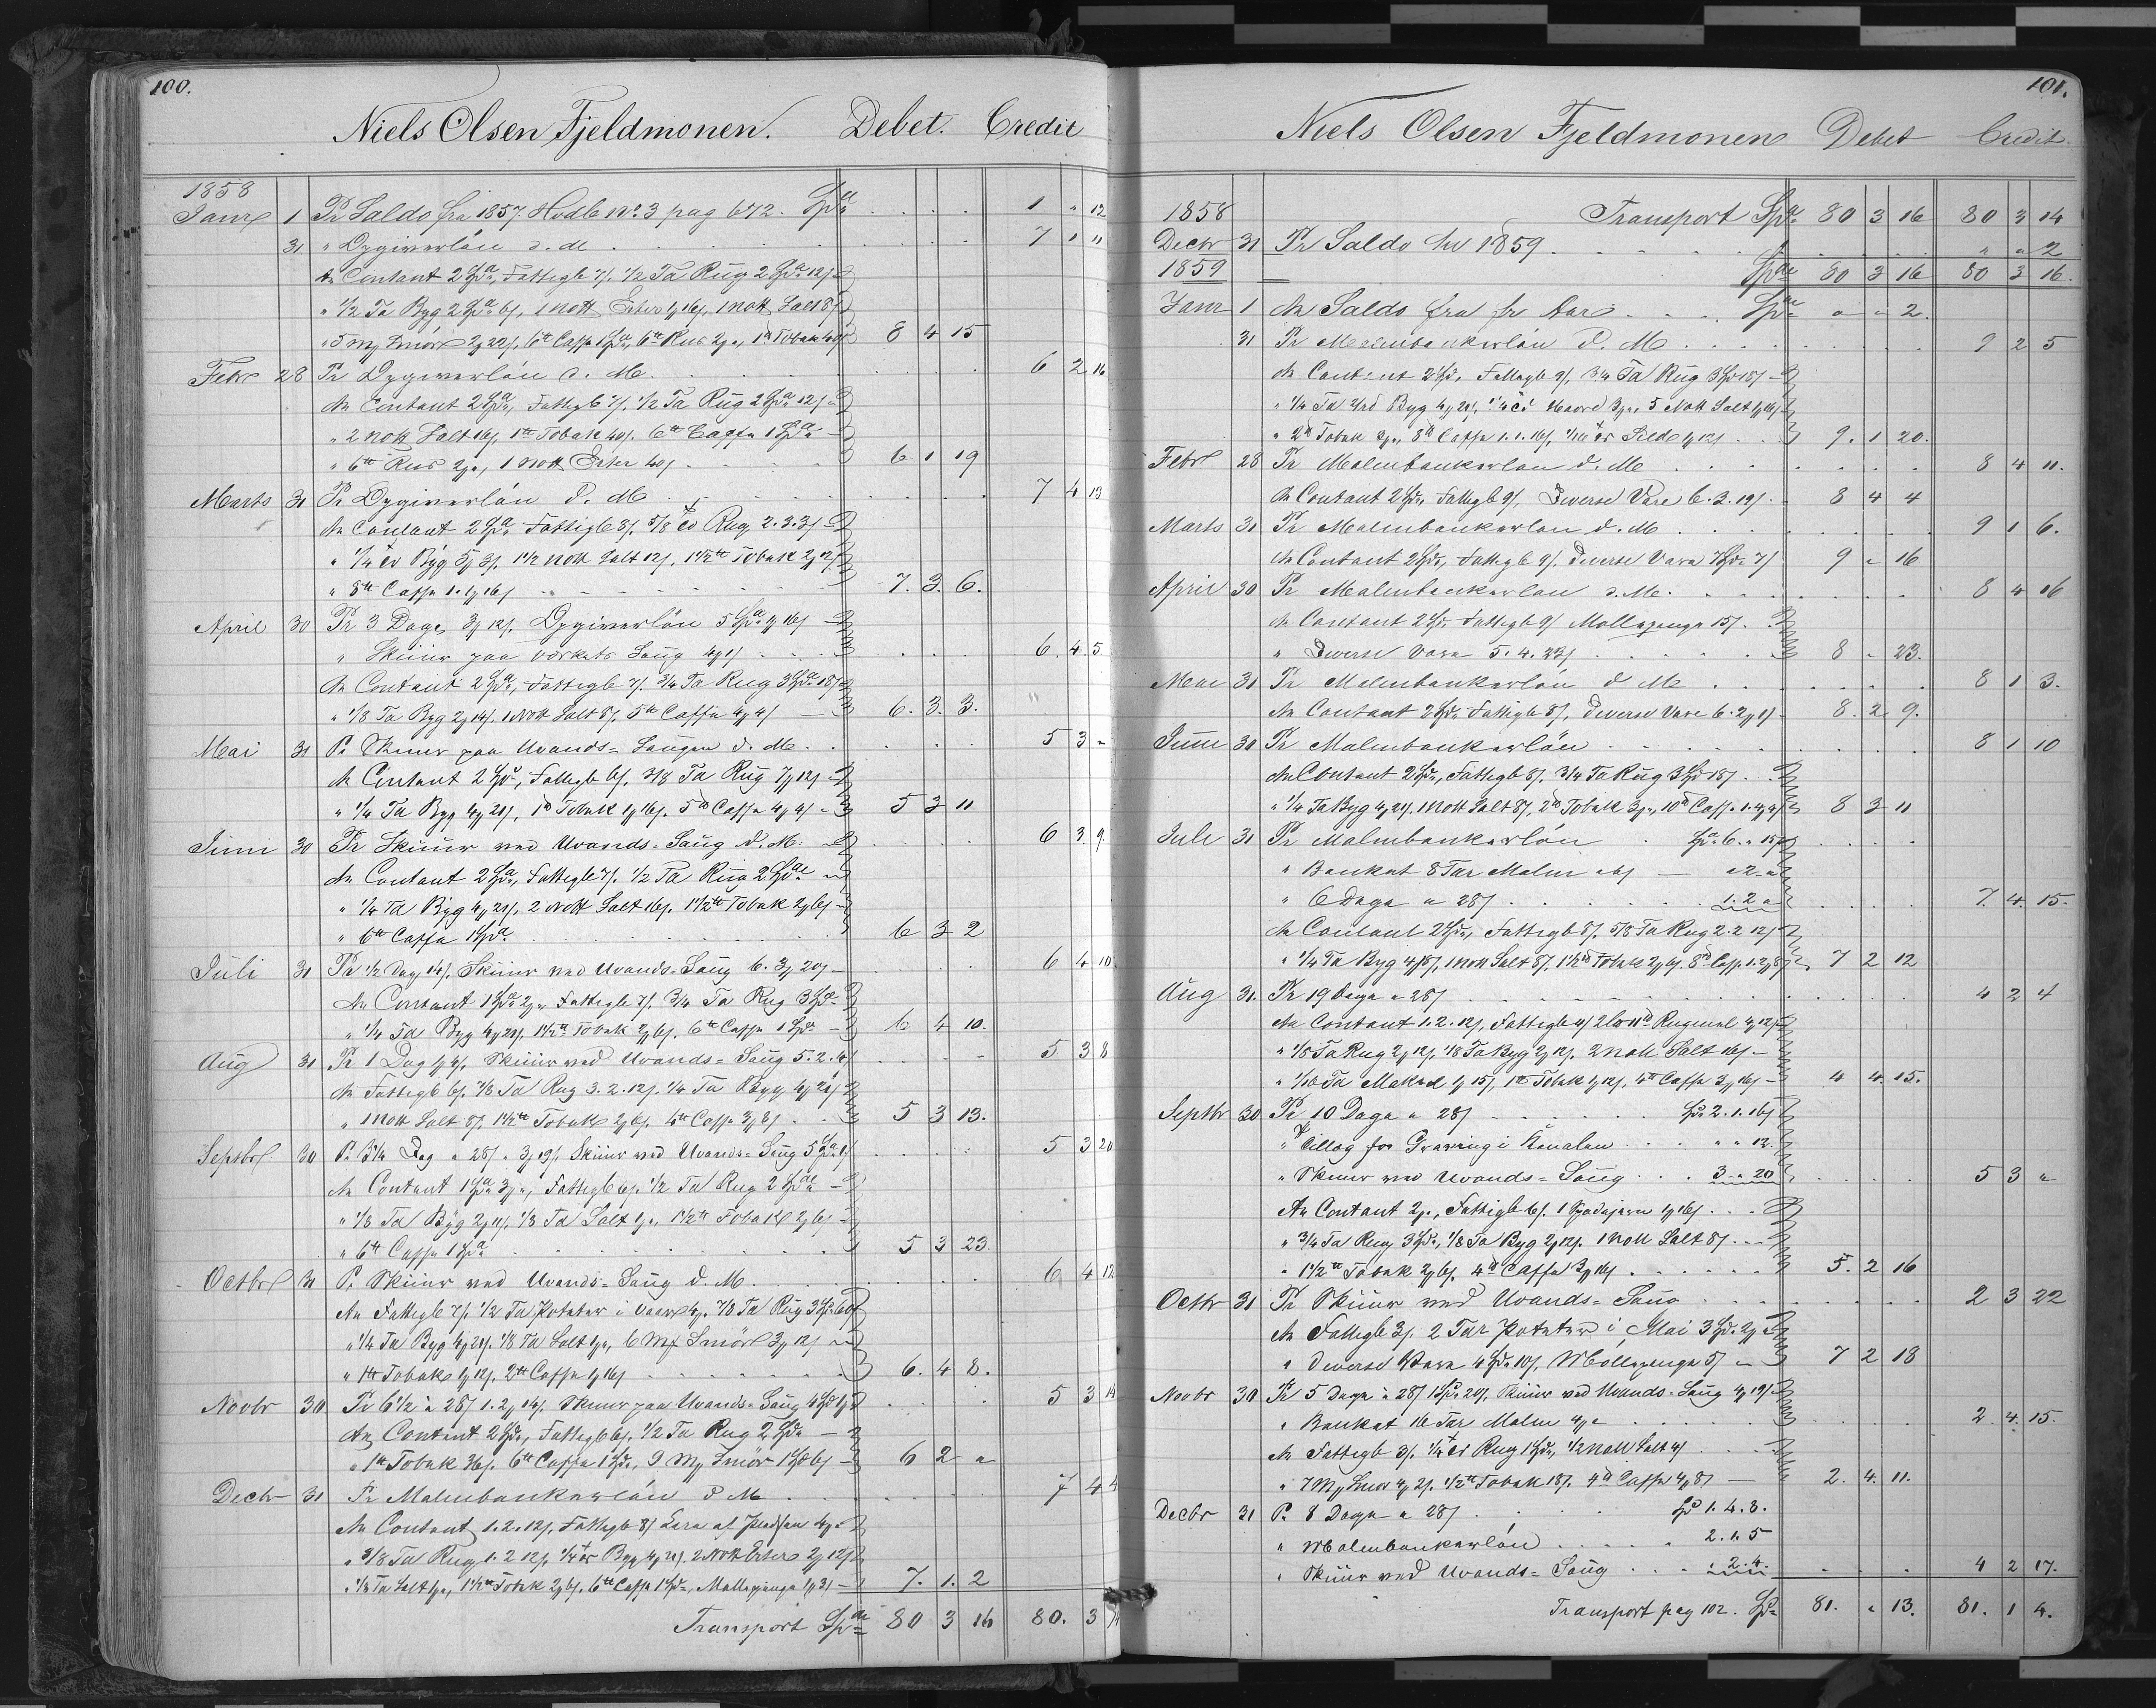 100.
Niels Olsen Fjeldmonen. Debet. Credit
1858
Janr 1 Pr Saldo fra 1857. Hvdb No 3 pag 672. Spd 1 " 12
31 " Opgiverlön d. M 7 1 11
An Contant 2 Spd, Fattigb 7/. 1/2 Ta Rug 2 Spd 12/
" 1/2 Ta Byg 2 Spd 6/, 1 Nott Erter 1 16/, 1 Nott Salt 8/
" 5 Mg Smör 2 22/, 6 tt Caffe 1 Spd, 6 tt Tobak 8 4 15
Febr 28 Pr Opgiverlön d. M. 6 2 16
An Contant 2 Spd, Fattigb 7/. 1/2 Ta Rug 2 Spd 12/
" 2 Nott Salt 16/, 1 tt Tobak 40/. 6 tt Caffe 1 Spd
" 6 tt 2, 1 Nott Erter 40/ 6 1 19
Marts 31 Pr Opgiverlön d. M 7 4 13
An Contant 2 Spd Fattigb 8/. 5/8 Rug 2.3.3/
" 1/4 Byg 3/. 1 1/2 Nott Salt 12/, 1 1/2 tt Tobak 2 12/
" 8 tt Caffe 1. 1 16/ 7. 3. 6.
April 30 Pr 3 Dage 3 12/. Opgiverlön 5 Spd 16/
" Skiur paa Saug 4 1/ 6. 4. 5
An Contant 2 Spd, Fattigb 7/. 3/4 Ta Rug 3 Spd 18/
" 1/8 Ta Byg 2 14/. 1 Nott Salt 8/. 5 tt Caffe 4 4/ 6. 3. 3.
Mai 31 Pr Skiur paa Uvands-Saugen d. M. 5 3 "
An Contant 2 Spd, Fattigb 6/. 3/8 Ta Rug 7 12/
" 1/4 Ta Byg 4 21/, 1 tt Tobak 1 16/. 5 tt Caffe 4 4/ 5 3 11
Juni 30 Pr Skiur ved Uvands-Saug d. M. 6 3 9
An Contant 2 Spd, Fattigb 7/. 1/2 Ta Rug 2 Spd
" 1/4 Ta Byg 4 21/, 2 Nott Salt 16/. 1 1/2 tt Tobak 2 6/
" 6 tt Caffe 1 Spd 6 3 2
Juli 31 Pr 1/2 Dag 14/. Skiur ved Uvands-Saug 6. 3 20/ 6 4 10
An Contant 1 Spd 2 " Fattigb 7/. 3/4 Ta Rug 3 Spd
" 1/4 Ta Byg 4 21/. 1 1/2 tt Tobak 2 6/. 6 tt Caffe 1 Spd 6 4 10.
Aug 31 Pr 1 Dag 1 4/. Skiur ved Uvands-Saug 5. 2. 4 5 3 8
An Fattigb 6/. 7/8 Ta Rug 3. 2. 12/. 1/4 Ta Byg 4 21/
" 1 Nott Salt 8/. 1 1/2 tt Tobak 2 6/. 4 tt Caffe 3 8/ 5 3 13.
Septbr 30 Pr 3 1/4 Dag a 28/ " 3 19/. Skiur ved Uvands-Saug 5 Spd 1/ 5 3 20
An Contant 1 Spd 3 ", Fattigb 6/. 1/2 Ta Rug 2 Spd
" 1/8 Ta Byg 2 11/. 1/8 Ta Salt 1 ", 1 1/2 tt Tobak 2 6/
" 6 tt Caffe 1 Spd 5 3 23.
Octbr 31 Pr Skiur ved Uvands-Saug d. M. 6 4 12
An Fattigb 7/. 1/2 Ta Poteter i Vaar 4. 7/8 Ta Rug 3 Spd 60/
" 1/4 Ta Byg 4 21/. 1/8 Ta Salt 1 ", 6 Mg Smör 3 12/
" 1 tt Tobak 1 12/. 2 tt Caffe 1 16/ 6. 4 8.
Novbr 30 Pr 6 1/2 a 28/ 1. 2 14/. Skiur paa Uvands-Saug 4 Spd 5 3 14
An Contant 2 Spd, Fattigb 6/. 1/2 Ta Rug 2 Spd
" 1 tt Tobak 36/. 6 tt Caffe 1 Spd, 9 Mg Smör 1 Spd 6/ 6 2 "
Decbr 31 Pr Malmbankerlön d M 7 4 4
An Contant 1. 2. 12/. Fattigb 8/
" 3/8 Ta Rug 1. 2 12/. 1/4 Byg 4 21/. 2 Nott Erter 2 12/
" 1/8 Ta Salt 1, 1 1/2 tt Tobak 2 6/. 6 tt Caffe 1 Spd, Mollepenge 1 3/ 7. 1. 2
Transport Spd 80 3 16 80. 3 14
101.
Niels Olsen Fjeldmonen Debet Credit
1858 Transport Spd 80 3 16 80 3 14
Decbr 31 Pr Saldo til 1859 " " 2
1859 Spd 80 3 16 80 3 16.
Janr 1 An Saldo fra fr Aar Spd " " 2.
31 Pr Malmbankerlön d. M 9 2 5
An Contant 2 Spd. Fattigb 9/. 3/4 Ta Rug 3 Spd 18/
" 1/4 Ta Byg 4 21/. 3, 5 Nott Salt 1 16/
" 2 tt Tobak 3, 8 tt Caffe 1. 1. 16/. 1/16 Sild 1 12/ 9. 1 20.
Febr 28 Pr Malmbankerlön d. M 8 4 11.
An Contant 2 Spd, Fattigb 9/, Diverse Vare 6. 3. 19/. 8 4 4
Marts 31 Pr Malmbankerlön d. M 9 1 6.
An Contant 2 Spd, Fattigb 9/. Diverse Vare 7 Spd 7/ 9 " 16
April 30 Pr Malmbankerlön d. M. 8 4 16
An Contant 2 Spd. Fattigb 9/ Mollepenge 15/.
" Diverse Vare 5. 4. 23/ 8 " 23.
Mai 31 Pr Malmbankerlön d M 8 1 3.
An Contant 2 Spd Fattigb 8/, Diverse Vare 6. 2 1/ 8. 2 9.
Juni 30 Pr Malmbankerlön 8 1 10
An Contant 2 Spd, Fattigb 8/. 3/4 Ta Rug 3 Spd 18/.
" 1/4 Ta Byg 4 21/. 1 Nott Salt 8/, 2 tt Tobak 3 ", 10 tt Caffe 1. 4 4/ 8 3 11
Juli 31 Pr Malmbankerlön Spd 6. " 15/
" Banket 8 Tar Malm a 6/ " 2 "
" 6 Dage a 28/ 1. 2 " 7. 4. 15.
An Contant 2 Spd, Fattigb 8/. 5/8 Ta Rug 2. 2 12/
" 1/4 Ta Byg 4 8/, 1 Nott Salt 8/, 1 1/2 tt Tobak 2 6/. 8 tt Caffe 1. 2 8/ 7 2 12
Aug 31. Pr 19 Dage a 28/ 4 2 4
An Contant 1. 2. 12/, Fattigb 4/ Rugmel 4 12/
" 1/8 Ta Rug 2 12/. 1/8 Ta Byg 2 12/. 2 Nott Salt 16/
" 1/16 Ta Makrel 1 15/, 1 tt Tobak 1 12/, 4 tt Caffe 2 16/ 4 4. 15.
Septbr 30 Pr 10 Dage a 28/ Spd 2. 1. 16/
" Tillæg for Gravning i Kanalen " " 12.
" Skiur ved Uvands-Saug 3 " 20 5 3 "
An Contant 2 ", Fattigb 6/. 1 Spadejern 1 16/
" 3/4 Ta Rug 3 Spd, 1/8 Ta Byg 2 12/. 1 Nott Salt 8/
" 1 1/2 tt Tobak 2 6/. 4 tt Caffe 3 16/ 5. 2 16
Octbr 31 Pr Skiur ved Uvands-Saug 2 3 22
An Fattigb 3/. 2 Tar Poteter i Mai 3 Spd 2
" Diverse Vare 4 Spd 10/. Mollepenge 5/ 7 2 18
Novbr 30 Pr 5 Dage a 28/ 1 Spd 20/, Skiur ved Uvands-Saug 4 19/
" Banket 16 Tar Malm 4 " 2. 4. 15.
An Fattigb 3/. 1/4 Rug 1 Spd, 1/2 Nott Salt 4/
" 7 Mg Smör 4 2/. 1/2 tt Tobak 18/. 4 tt Caffe 4 8/ 2. 4. 11.
Decbr 31 Pr 8 Dage a 28/ Spd 1. 4. 8.
" Malmbankerlön 2. 1. 5
" Skiur ved Uvands-Saug " 2. 4. 4 2 17.
Transport pag 102. Spd 81. " 13. 81. 1 4.